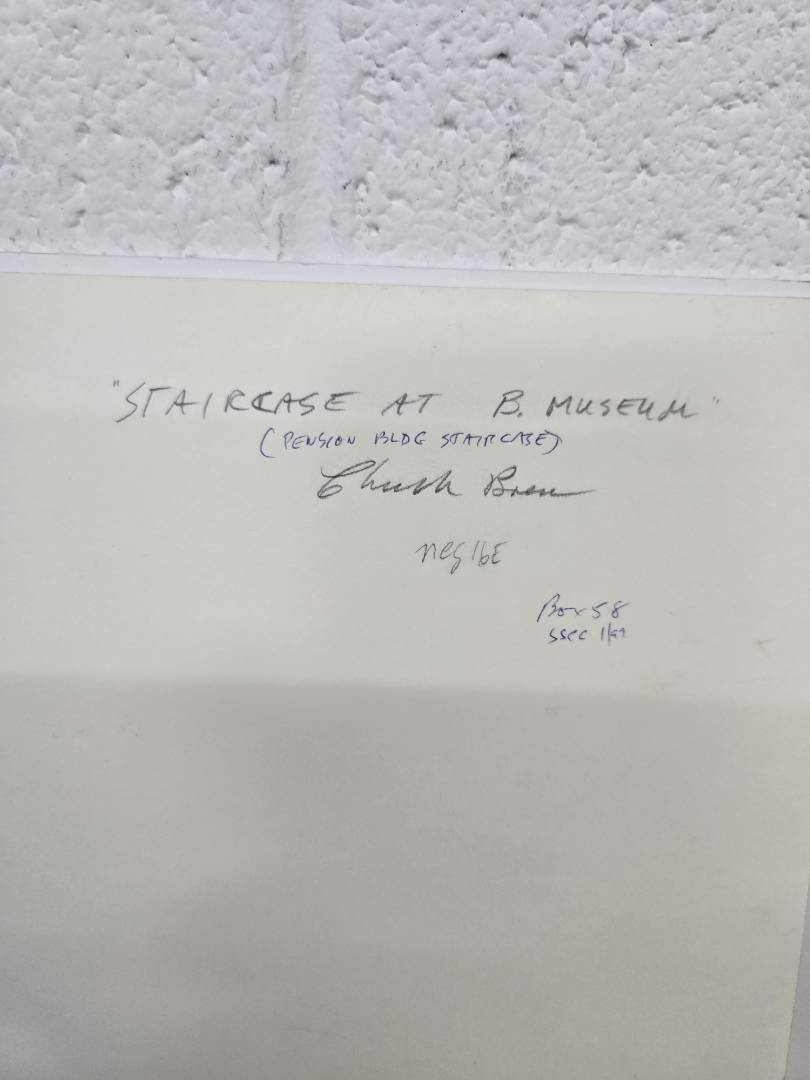 "STAIRCASE AT B. MUSEUM"
(PENSION BLDG STAIRCASE)
Chuck
neg 16E
Box 58